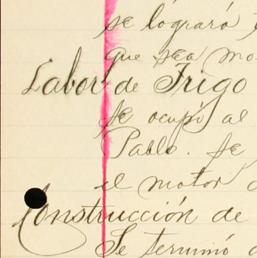 se lograrà
que sea mo
Labor de Trigo
Se ocupó al
Pablo. Se
el motor
Construcción de
Se terminó